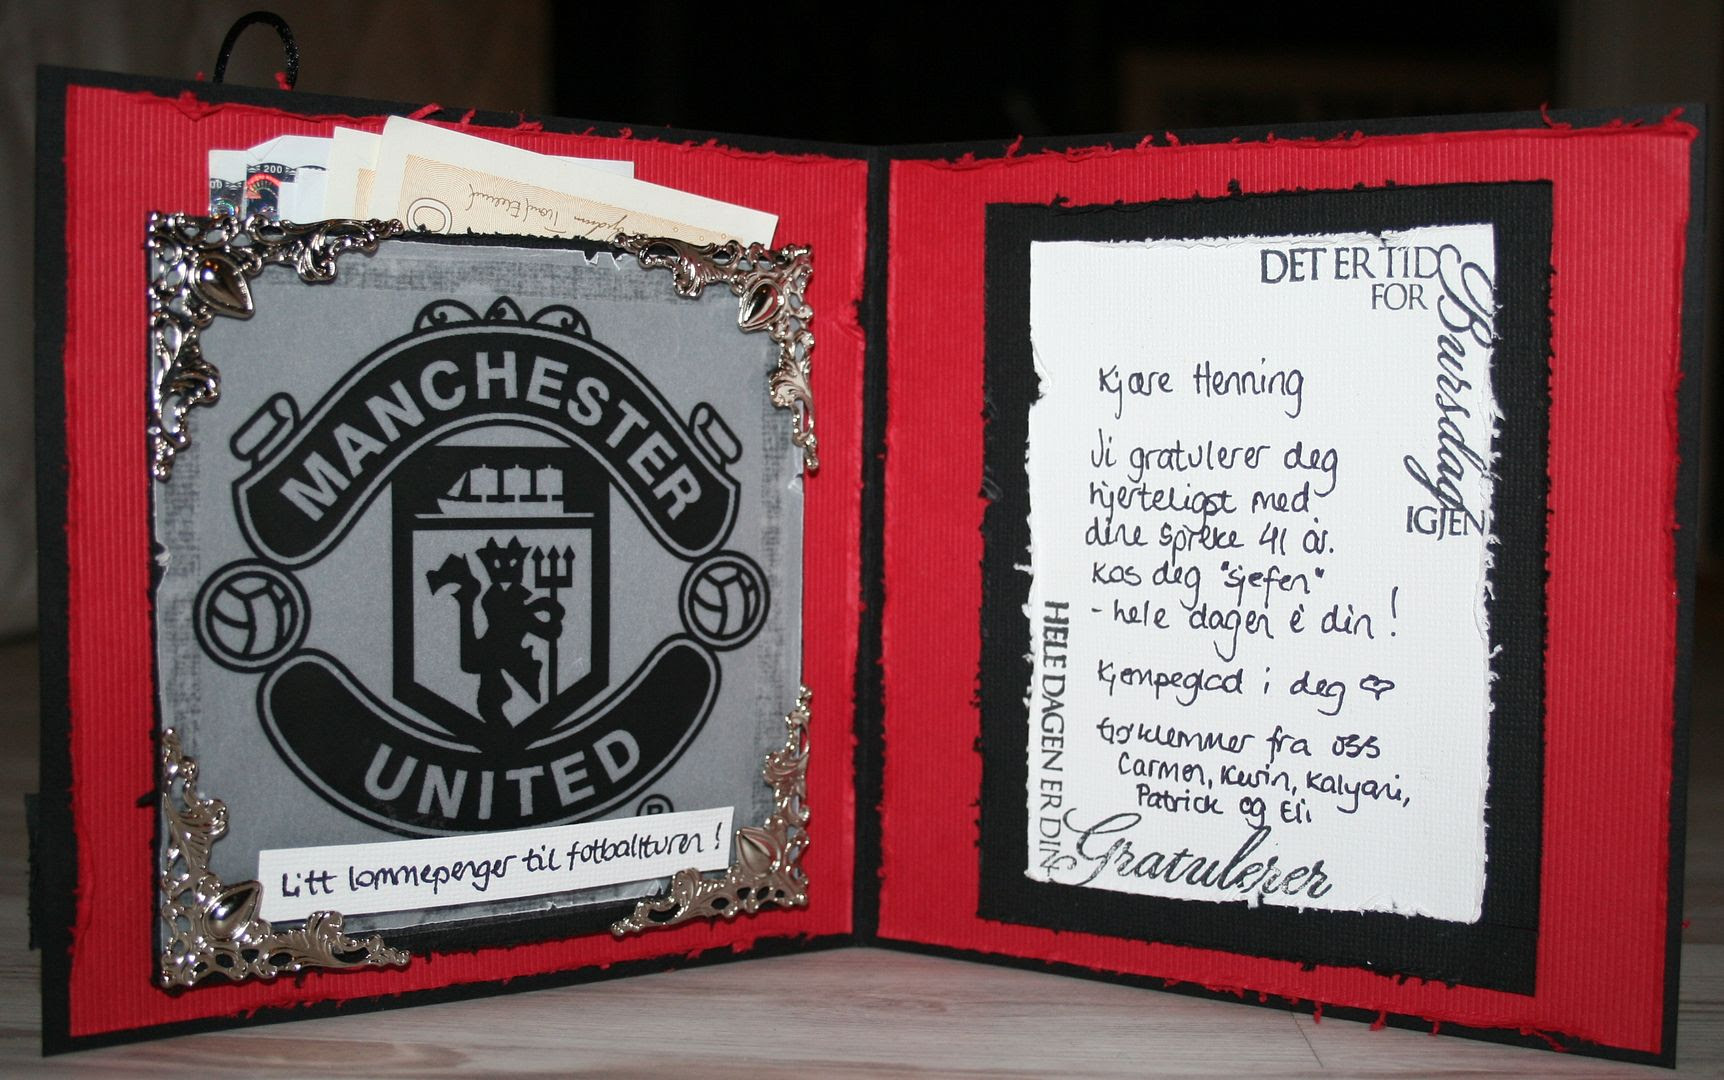 200
MANCHESTER
UNITED
®
Litt lommepenger til fotballturen!
DET ER TID
FOR
Bursdag
IGJEN
Kjære Henning
Vi gratulerer deg
hjerteligst med
dine spreke 41 år.
Kos deg "sjefen"
- hele dagen è din!
Kjempeglad i deg ♡
fra oss
Carmen, Kevin, Kalyani,
Patrick og Eli
HELE DAGEN ER DIN
Gratulerer